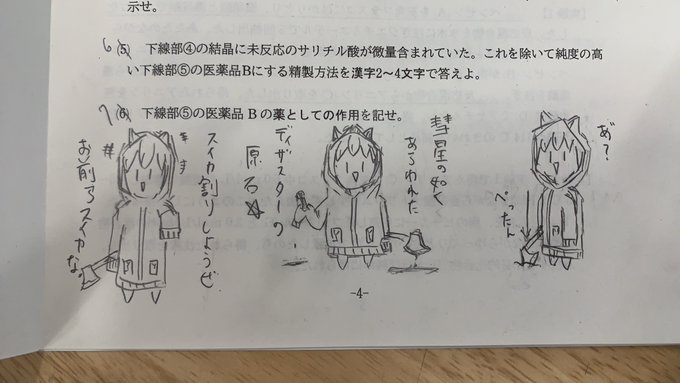 示せ。
6 (5) 下線部④の結晶に未反応のサリチル酸が微量含まれていた。これを除いて純度の高
い下線部⑤の医薬品Bにする精製方法を漢字2~4文字で答えよ。
7 (6) 下線部⑤の医薬品 B の薬としての作用を記せ。
あ"?
ぺったん
彗星の如く
あらわれた
ディザスターの
原石☆
スイカ割りしようぜ
お前スイカな
-4-